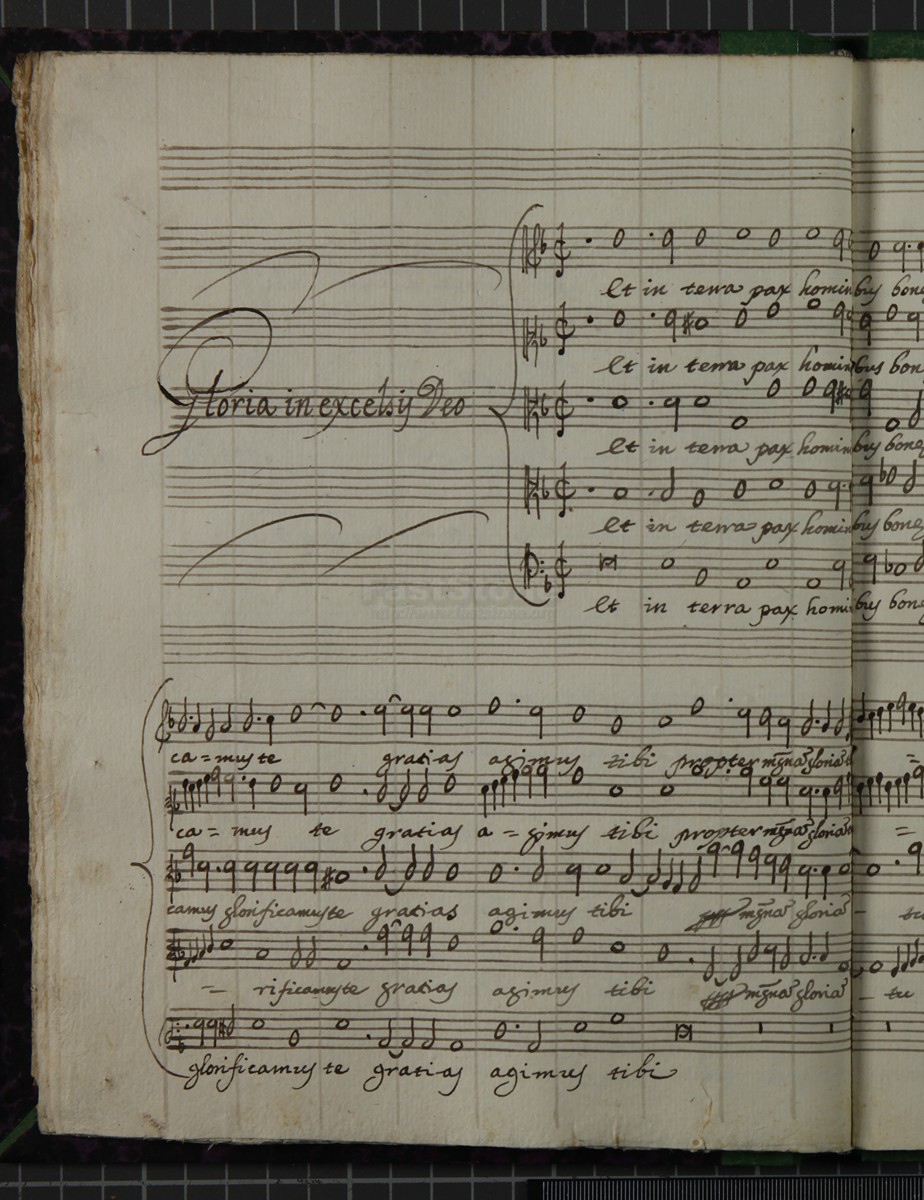 Et in terra pax hominibus bone
Et in terra pax hominibus bon
Gloria in excelsij Deo
Et in terra pax hominibus bone
Et in terra pax hominibus bone
Et in terra pax hominibus bone
ca = mus te gratias agimus tibi propter mgna gloria =
ca = mus te gratias a = gimus tibi propter mgna gloria =
camus glorificamus te gratias agimus tibi mgna gloria - tu
= rificamus te gratias agimus tibi mgna gloria - tu
glorificamus te gratias agimus tibi